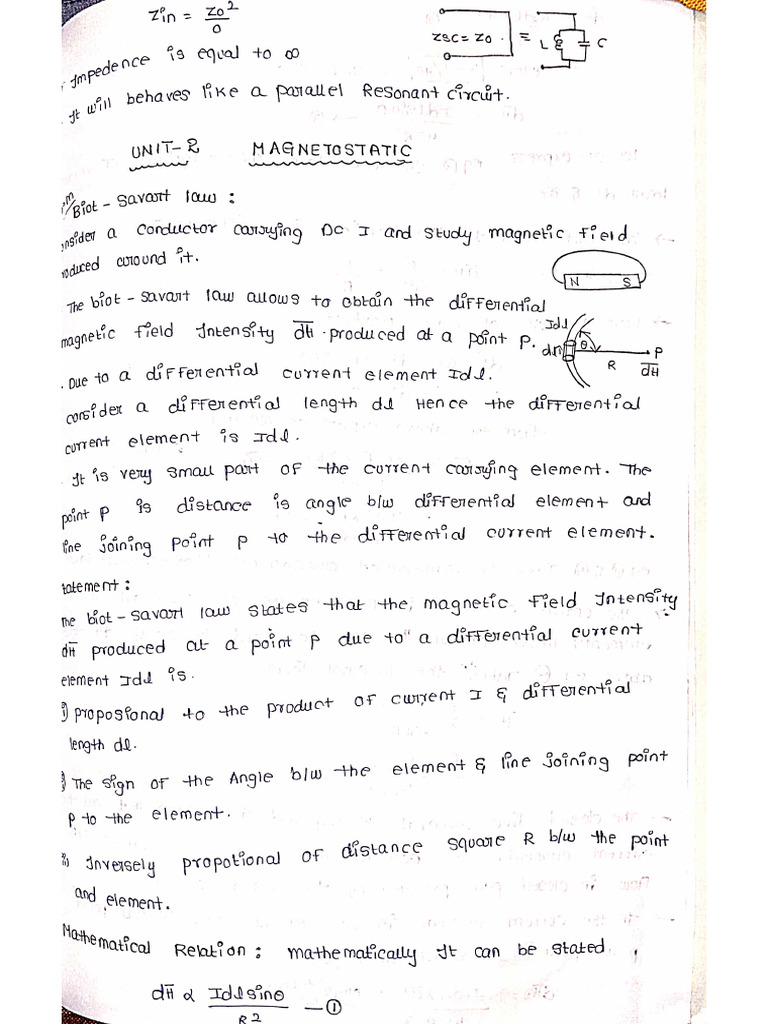 Zin = Zo²/0
ZSC = Zo. = L C
Impedence is equal to ∞
It will behaves like a parallel Resonant circuit.
UNIT-2 MAGNETOSTATIC
Biot-savart law:
onsider a conductor carrying DC I and study magnetic field
oduced around it.
N S
The biot-savart law allows to obtain the differential
magnetic field Intensity dH̅ produced at a point P.
Idl
dl θ P
R dH̅
. Due to a differential current element Idl.
consider a differential length dl Hence the differential
current element is Idl.
It is very small part of the current carrying element. The
point P is distance is angle b/w differential element and
line joining point P to the differential current element.
tatement:
The biot-savart law states that the, magnetic field Intensity
dH̅ produced at a point P due to a differential current
element Idl is.
i) proposional to the product of current I & differential
length dl.
The sign of the Angle b/w the element & line joining point
P to the element.
Inversely propotional of distance square R b/w the point
and element.
Mathematical Relation: mathematically It can be stated
dH̅ ∝ Idlsinθ/R² — ①